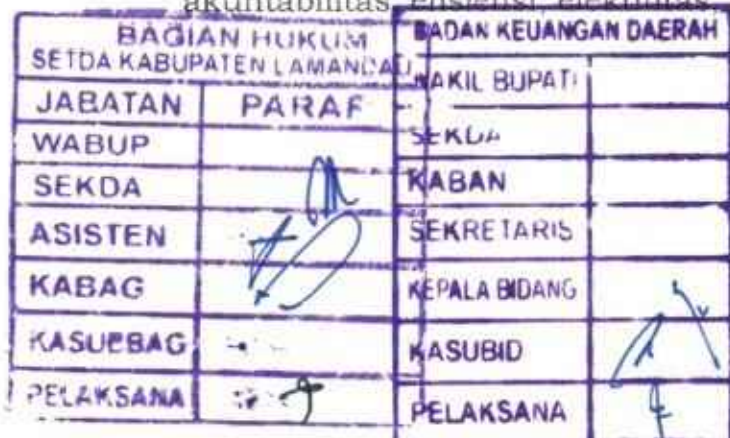 akuntabilitas efisiensi efektifitas
BAGIAN HUKUM
SETDA KABUPATEN LAMANDAU
JABATAN PARAF
WABUP
SEKDA
ASISTEN
KABAG
KASUBBAG
PELAKSANA
BADAN KEUANGAN DAERAH
WAKIL BUPATI
SEKDA
KABAN
SEKRETARIS
KEPALA BIDANG
KASUBID
PELAKSANA